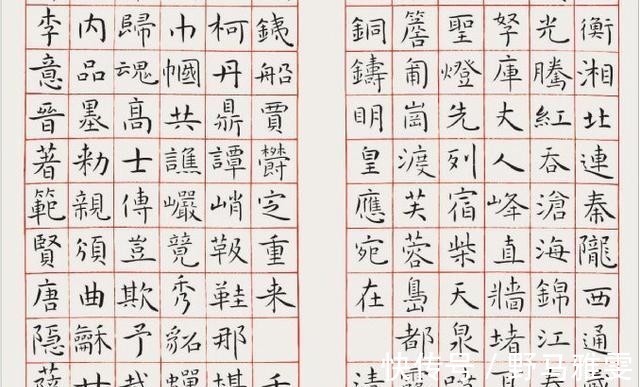 衡湘北連秦隴西通
光騰紅吞滄海錦江春
庫丈人峰直牆堵
聖燈先列宿柴天泉
崗渡芙蓉島都
銅鑄明皇應宛在清
銕船賈鬱定重来
柯丹鼎譚峭靸鞋那堪
巾幗共譙巖競秀貂蟬
歸魂高士傳豈欺予
内品墨勅親頒曲龢
李意晉著範賢唐隱
快传号/野马雅雯